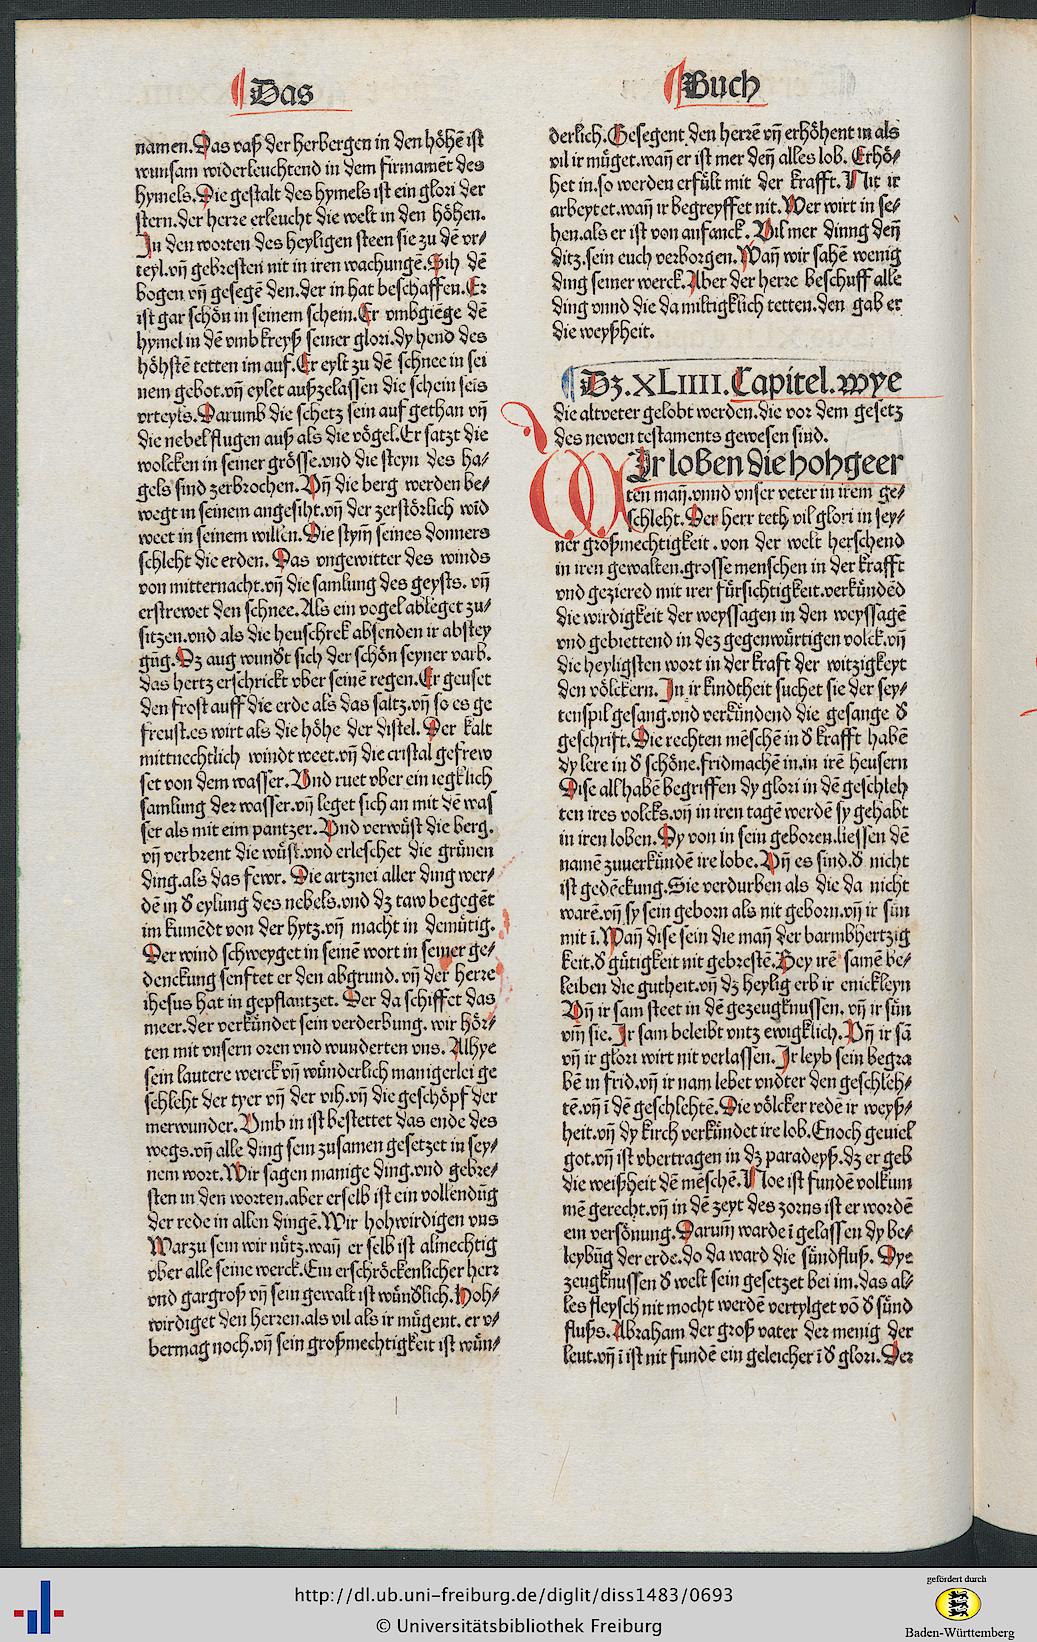 Das
namen.Das vaß der herbergen in den höhē ist
wunsam widerleuchtend in dem firmamēt des
hymels.Die gestalt des hymels ist ein glori der
stern.der herre erleucht die welt in den höhen.
In den worten des heyligen steen sie zu dē vr⸗
teyl.vn̄ gebresten nit in iren wachungē.Sih dē
bogen vn̄ gesegē den.der in hat beschaffen.Er
ist gar schön in seinem schein.Er vmbgiēge dē
hymel in dē vmbkreyß seiner glori.dy hend des
höhstē tetten im auf.Er eylt zu dē schnee in sei
nem gebot.vn̄ eylet außzelassen die schein seis
vrteyls.Darumb die schetz sein auf gethan vn̄
die nebel flugen auß als die vögel.Er satzt die
wolcken in seiner grösse.vnd die steyn des ha⸗
gels sind zerbrochen.Vn̄ die berg werden be⸗
wegt in seinem angesiht.vn̄ der zerstörlich wid
weet in seinem willen.Die stym̄ seines donners
schleht die erden.Das vngewitter des winds
von mitternacht.vn̄ die samlung des geysts. vn̄
erstrewet den schnee.Als ein vogel ableget zu⸗
sitzen.vnd als die heuschrek absenden ir abstey
gūg.Dz aug wundt sich der schön seyner varb.
das hertz erschrickt vber seinē regen.Er geuset
den frost auff die erde als das saltz.vn̄ so es ge
freust.es wirt als die höhe der distel.Der kalt
mittnechtlich windt weet.vn̄ die cristal gefrew
set von dem wasser.Vnd ruet vber ein iegklich
samlung der wasser.vn̄ leget sich an mit dē was
ser als mit eim pantzer.Vnd verwüst die berg.
vn̄ verbrent die wüst.vnd erleschet die grünen
ding.als das fewr. Die artznei aller ding wer⸗
dē in d eylung des nebels.vnd dz taw begegēt
im kumēdt von der hytz.vn̄ macht in demütig.
Der wind schweyget in seinē wort in seiner ge⸗
denckung senftet er den abgrund. vn̄ der herre
ihesus hat in gepflantzet. Der da schiffet das
meer.der verkündet sein verderbung. wir hör⸗
ten mit vnsern oren vnd wunderten vns. Alhye
sein lautere werck vn̄ wünderlich manigerlei ge
schleht der tyer vn̄ der vih.vn̄ die geschöpf der
merwunder.Vmb in ist bestettet das ende des
wegs.vn̄ alle ding sein zusamen gesetzet in sey⸗
nem wort.Wir sagen manige ding.vnd gebre⸗
sten in den worten.aber er selb ist ein vollendūg
der rede in allen dingē.Wir hohwirdigen vns
Warzu sein wir nütz.wan̄ er selb ist almechtig
vber alle seine werck.Ein erschröckenlicher herr
vnd gar groß vn̄ sein gewalt ist wūdlich.Hoh⸗
wirdiget den herren.als vil als ir mügent. er v⸗
bermag noch.vn̄ sein großmechtigkeit ist wün⸗
Buch
derlich.Gesegent den herrē vn̄ erhöhent in als
vil ir müget.wan̄ er ist mer den̄ alles lob. Erhö⸗
het in.so werden erfült mit der krafft. Nit ir
arbeytet.wan̄ ir begreyffet nit.Wer wirt in se⸗
hen.als er ist von anfanck. Vil mer dinng den̄
ditz.sein euch verborgen.Wan̄ wir sahē wenig
ding seiner werck.Aber der herre beschuff alle
ding vnnd die da miltigklich tetten.den gab er
die weyßheit.
Dz.XLIIII.Capitel.wye
die altveter gelobt werden.die vor dem gesetz
des newen testaments gewesen sind.
WIr loben die hohgeer
ten man̄.vnnd vnser veter in irem ge⸗
schleht.Der herr teth vil glori in sey⸗
ner großmechtigkeit.von der welt herschend
in iren gewalten.grosse menschen in der krafft
vnd geziered mit irer fürsichtigkeit.verkündēd
die wirdigkeit der weyssagen in den weyssagē
vnd gebiettend in dez gegenwürtigen volck.vn̄
die heyligsten wort in der kraft der witzigkeyt
den völckern. In ir kindtheit suchet sie der sey⸗
tenspil gesang.vnd verkündend die gesange d
geschrift.Die rechten mēschē in d krafft habē
dy lere in d schöne.fridmachē in.in irē heusern
Dise all habē begriffen dy glori in dē geschleh
ten ires volcks.vn̄ in iren tagē werdē sy gehabt
in iren loben.Dy von in sein geboren.liessen dē
namē zuuerkündē ire lobe.Vn̄ es sind.d nicht
ist gedēckung.Sie verdurben als die da nicht
warē.vn̄ sy sein geborn als nit geborn.vn̄ ir sün
mit ī.Wan̄ dise sein die man̄ der barmbhertzig
keit.d gütigkeit nit gebrestē.Bey irē samē be⸗
leiben die gutheit.vn̄ dz heylig erb ir enickleyn
Vn̄ ir sam steet in dē gezeugknussen. vn̄ ir sün
vm̄ sie. Ir sam beleibt vntz ewigklich.Vn̄ ir sā
vn̄ ir glori wirt nit verlassen.Ir leyb sein begra
bē in frid.vn̄ ir nam lebet vndter den geschleh⸗
tē.vn̄ ī dē geschlehtē.Die völcker redē ir weyß⸗
heit.vn̄ dy kirch verkündet ire lob.Enoch geuiel
got.vn̄ ist vbertragen in dz paradeyß.dz er geb
die weißheit dē mēschē.Noe ist fundē volkum
mē gerecht.vn̄ in dē zeyt des zorns ist er wordē
ein versönung.Darum̄ warde ī gelassen dy be⸗
leybūg der erde.do da ward die sündfluß. Dye
zeugknussen d welt sein gesetzet bei im.das al⸗
les fleysch nit mocht werdē vertylget vō d sünd
fluß.Abraham der groß vater der menig der
leut.vn̄ ī ist nit fundē ein geleicher ī d glori. Der
http://dl.ub.uni-freiburg.de/diglit/diss1483/0693
© Universitätsbibliothek Freiburg
gefördert durch
Baden-Württemberg